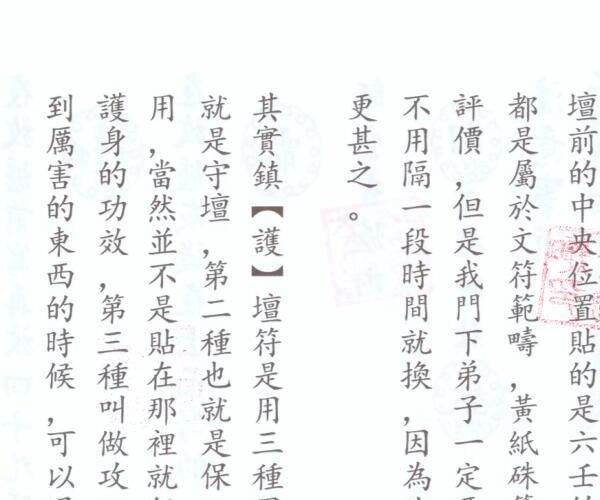 壇前的中央位置貼的是六壬
都是屬於文符範疇，黃紙硃
評價，但是我門下弟子一定
不用隔一段時間就換，因為
更甚之。
其實鎮【護】壇符是用三種
就是守壇，第二種也就是保
用，當然並不是貼在那裡就
護身的功效，第三種叫做攻
到厲害的東西的時候，可以